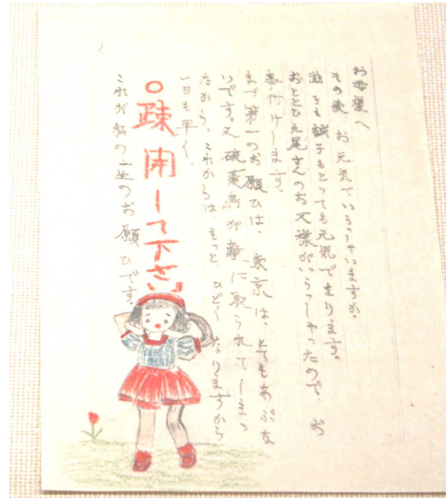 お母様へ
その後、お元気でいらっしゃいますか。
私も誠子もとっても元気で走ります。
おととひ、丸尾さんのお父様がいらっしゃったので、お
言付けします。
まづ第一のお願ひは、東京は、とてもあぶな
いです。又硫黄島が敵に取られてしまっ
たから、これからは、もっと、ひどくなりますから
一日も早く、
○疎開して下さい
これが私の一生のお願ひです。